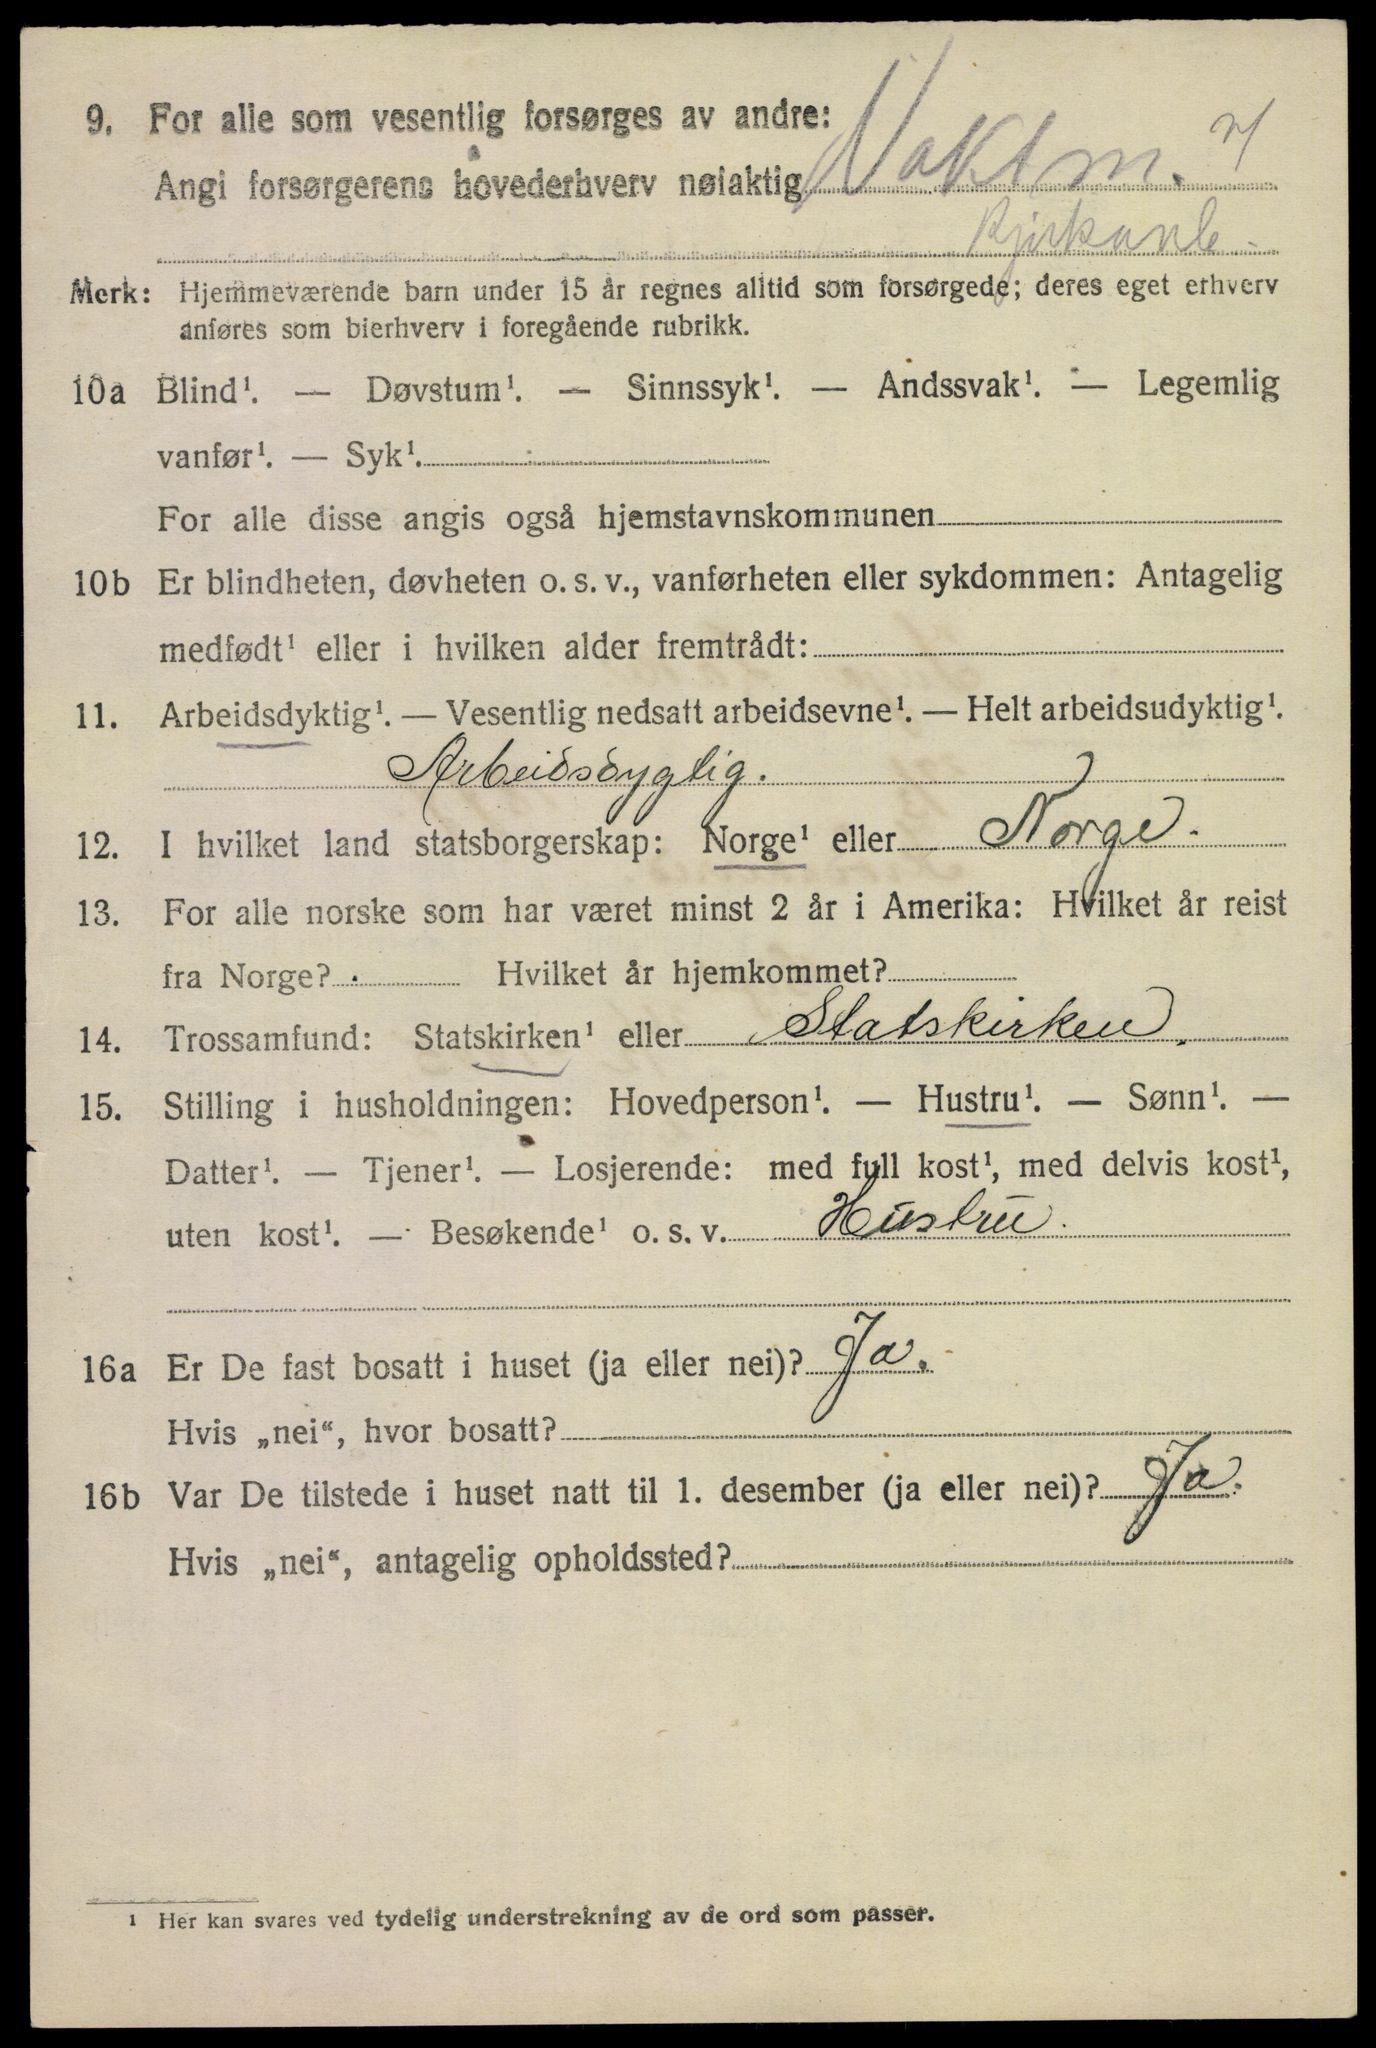 9. For alle som vesentlig forsørges av andre:
Angi forsørgerens hovederhverv nøiaktig Vaktm.
Merk: Hjemmeværende barn under 15 år regnes alltid som forsørgede; deres eget erhverv
anføres som bierhverv i foregående rubrikk.
10a Blind¹. — Døvstum¹. — Sinnssyk¹. — Andssvak¹. — Legemlig
vanfør¹. — Syk¹.
For alle disse angis også hjemstavnskommunen
10b Er blindheten, døvheten o. s. v., vanførheten eller sykdommen: Antagelig
medfødt¹ eller i hvilken alder fremtrådt:
11. Arbeidsdyktig¹. — Vesentlig nedsatt arbeidsevne¹. — Helt arbeidsudyktig¹.
Arbeidsdygtig.
12. I hvilket land statsborgerskap: Norge¹ eller Norge.
13. For alle norske som har været minst 2 år i Amerika: Hvilket år reist
fra Norge? Hvilket år hjemkommet?
14. Trossamfund: Statskirken¹ eller Statskirken.
15. Stilling i husholdningen: Hovedperson¹. — Hustru¹. — Sønn¹. —
Datter¹. — Tjener¹. — Losjerende: med full kost¹, med delvis kost¹,
uten kost¹. — Besøkende¹ o. s. v. Hustru.
16a Er De fast bosatt i huset (ja eller nei)? Ja.
Hvis „nei“, hvor bosatt?
16b Var De tilstede i huset natt til 1. desember (ja eller nei)? Ja.
Hvis „nei“, antagelig opholdssted?
¹ Her kan svares ved tydelig understrekning av de ord som passer.